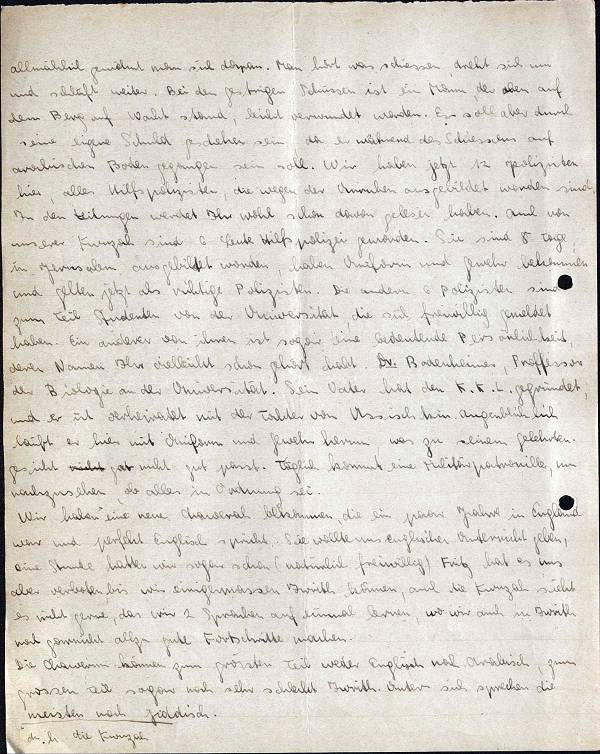 allmählich gewöhnt man sich daran. Man hört was schiessen, dreht sich um
und schläft weiter. Bei den gestrigen Schüssen ist ein Mann, der oben auf
dem Berg auf Wacht stand, leicht verwundet worden. Es soll aber durch
seine eigene Schuld geschehen sein, da er während des Schiessens auf
arabischen Boden gegangen sein soll. Wir haben jetzt 12 Polizisten
hier, alles Hilfspolizisten, die wegen der Unruhen ausgebildet worden sind.
In den Zeitungen werdet Ihr wohl schon davon gelesen haben. Auch von
unserer Kwuzah sind 6 Leute Hilfspolizei geworden. Sie sind 8 Tage
in Jerusalem ausgebildet worden, haben Uniform und Gewehr bekommen
und gelten jetzt als richtige Polizisten. Die andern 6 Polizisten sind
zum Teil Studenten von der Universität die sich freiwillig gemeldet
haben. Ein anderer von ihnen ist sogar eine bedeutende Persönlichkeit,
deren Namen Ihr vielleicht schon gehört habt. Dr. Bodenheimer, Proffessor
der Biologie an der Universität. Sein Vater hat den K.K.L. gegründet,
und er ist verheiratet mit der Tochter von Ussischkin. Augenblicklich
läuft er hier mit Uniform und Gewehr herum, was zu seinem gelehrten-
gesicht nicht gut passt. Täglich kommt eine Militärpatrouille, um
nachzusehen, ob alles in Ordnung sei.
Wir haben eine neue Chawerah bekommen, die ein paar Jahre in England
war und perfekt Englisch spricht. Sie wollte uns englischen Unterricht geben,
eine Stunde hatten wir sogar schon (natürlich freiwillig) Fritz hat es uns
aber verboten, bis wir einigermassen Iwrith können, auch die Kwuzah sieht
es nicht gerne, das wir 2 Sprachen auf einmal lernen, wo wir auch in Iwrith
noch garnicht allzu gute Fortschritte machen.
Die Chawerim können zum grössten Teil weder Englisch noch Arabisch, zum
grossen Teil sogar noch sehr schlecht Iwrith. Unter sich sprechen die
meisten noch jiddisch.
d. h. die Kwuzah